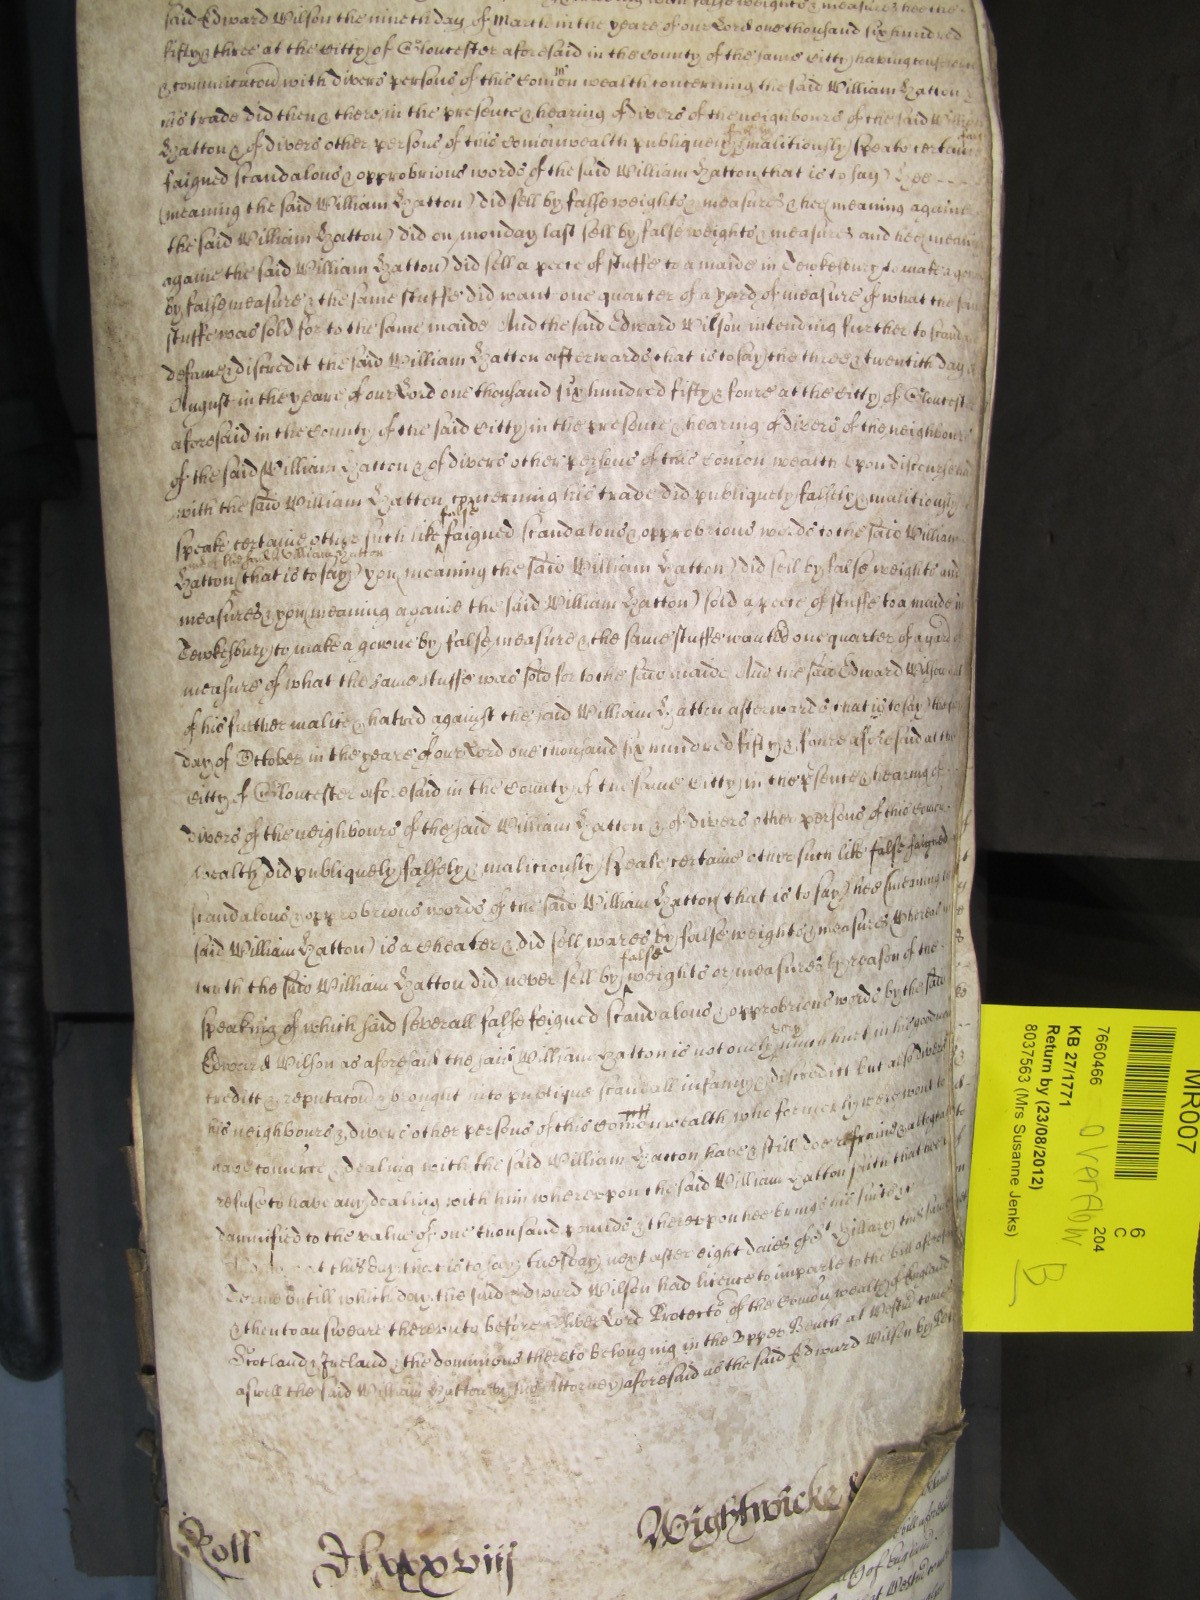 said Edward Wilson the nineth day of March in the yeare of our Lord one thousand six hundred
fifty & three at the Citty of Gloucester aforesaid in the County of the same Citty having
& communicacon with divers persons of this Comon wealth concerning the said William Hatton &
his trade did then & there in the presence & hearing of divers of the neighbours of the said William
Hatton & of divers other persons of this Comonwealth publiquely & malitiously speake certaine
faigned scandalous & opprobrious words of the said William Hatton that is to say hee
(meaning the said William Hatton) did sell by false weights & measures & hee meaning againe
the said William Hatton) did on monday last sell by false weights & measures and hee meaning
againe the said William Hatton) did sell a peece of stuffe to a maide in Tewkesbury to make a
by false measure & the same stuffe did want one quarter of a yard of measure of what the same
stuffe was sold for to the same maide And the said Edward Wilson intending further to
defame & discredit the said William Hatton afterwards that is to say the three & twentith day of
August in the yeare of our Lord one thousand six hundred fifty & foure at the Citty of Gloucester
aforesaid in the County of the said Citty in the presence & hearing of divers of the neighbours
of the said William Hatton & of divers other persons of this Comon wealth upon discourse
with the said William Hatton concerning his trade did publiquely falsely & malitiously
speake certaine other such like false faigned scandalous & opprobrious words to the said William
and of the said William Hatton
Hatton (that is to say) you (meaning the said William Hatton) did sell by false weights and
measures & you (meaning againe the said William Hatton) sold a peece of stuffe to a maide in
Tewkesbury to make a gowne by false measure & the same stuffe wanted one quarter of a yard of
measure of what the same stuffe was sold for to the said maide And the said Edward Wilson
of his further malice & hatred against the said William Hatton afterwards that is to say the
day of October in the yeare of our Lord one thousand six hundred fifty & foure aforesaid at the
Citty of Gloucester aforesaid in the County of the same Citty in the presence & hearing of
divers of the neighbours of the said William Hatton & of divers other persons of this Comon
wealth did publiquely falsely & maliciously speake certaine other such like false faigned
scandalous & opprobrious words of the said William Hatton (that is to say) hee (meaning the
said William Hatton) is a cheater & did sell wares by false weights & measures Whereas in
truth the said William Hatton did never sell by false weights or measures by reason of the
speaking of which said severall false feigned scandalous & opprobrious words by the said
Edward Wilson as aforesaid the said William Hatton is not onely very much hurt in his goodname
creditt & reputacon & brought into publique scandall infamy & discreditt but also divers
his neighbours & divers other persons of this Comon wealth who formerly were wont to
have comerce & dealing with the said William Hatton have & still doe refraine & altogether
refuse to have any dealing with him whereupon the said William Hatton saith that hee is
damnified to the value of one thousand pounds & thereupon hee brings his suite &c
at this day that is to say tuesday next after eight daies of St Hillary this same
Terme untill which day the said Edward Wilson had licence to imparle to the bill aforesaid
& then to answeare thereunto before Oliver Lord Protector of the Comon wealth of England
Scotland & Ireland & the dominions thereto belonging in the Upper Bench at Westm come
aswell the said William Hatton by his Attorney aforesaid as the said Edward Wilson by
Roll
Wightwicke
MR007
7660466
6
C
204
KB 27/1771
Return by (23/08/2012)
8037563 (Mrs Susanne Jenks)
overflow
B